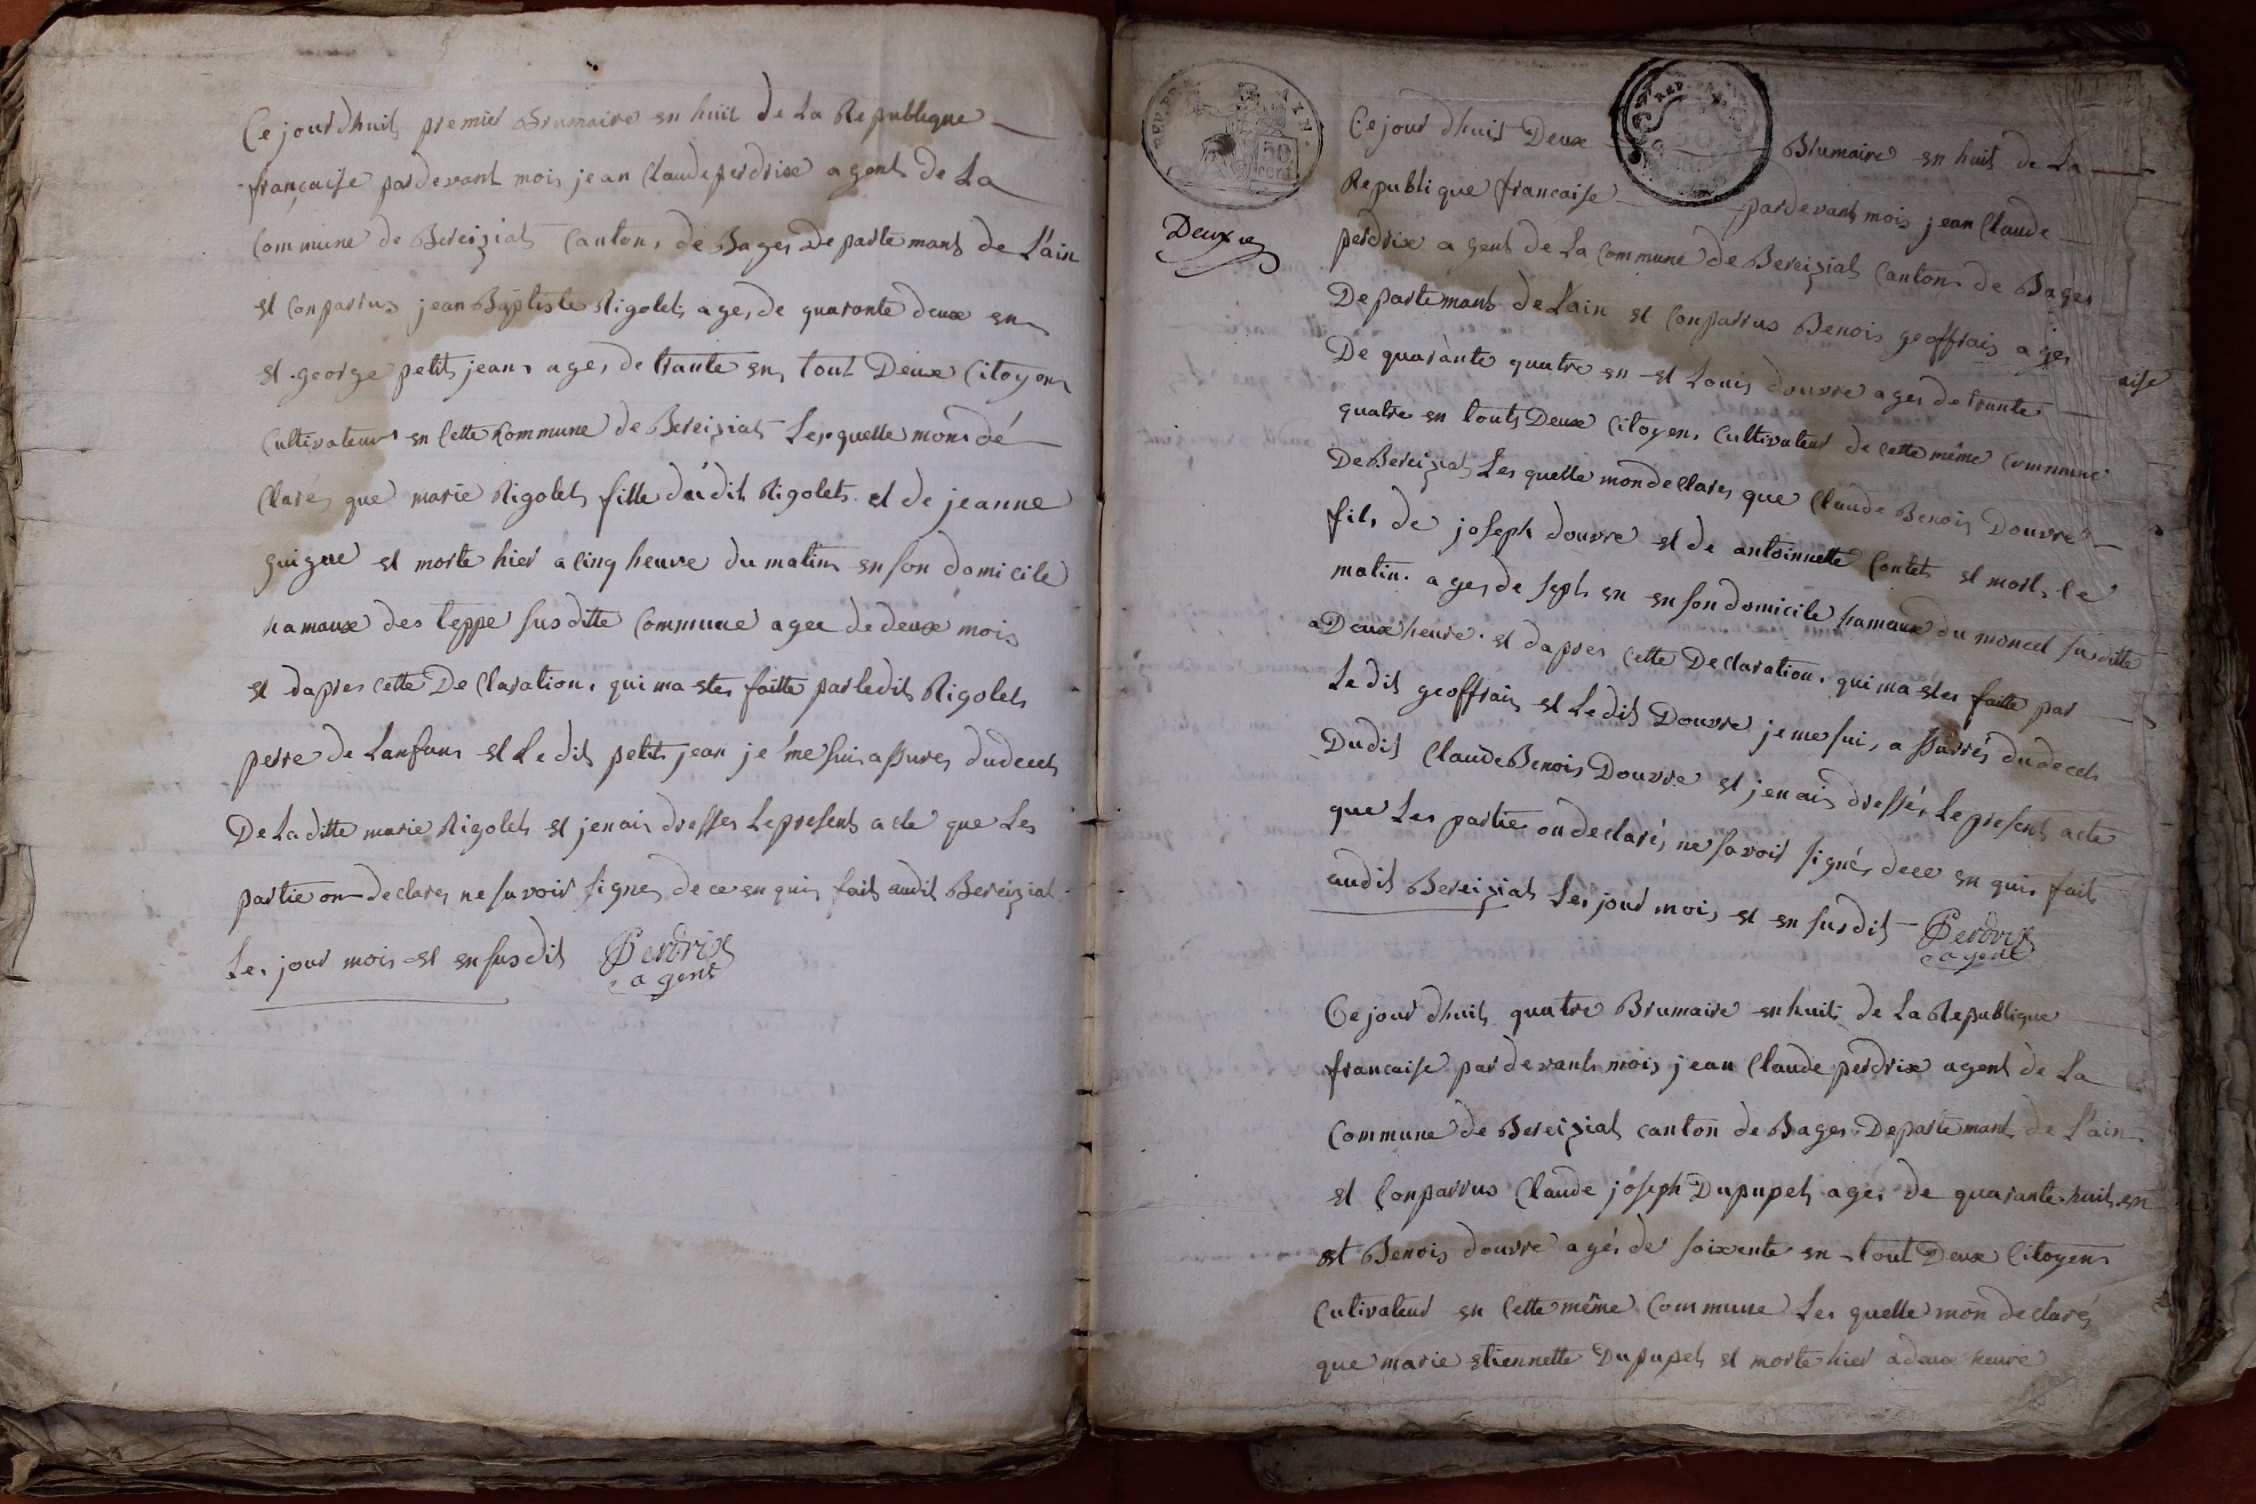 Ce jourdhuit premier Brumaire en huit de La Republique
française pardevant mois jean Claude perdrix agent de La
Commune de Bereiziat Canton de Bages Departemant de L'ain
et Conparrus jean Baptiste Rigolet ages de quarante deux en
et george petit jean ages de trante en tout Deux Citoyens
Cultivateur en Cette Kommune de Bereiziat Lesquelle mon dé
Clarés que marie Rigolet fille dudit Rigolet et de jeanne
guigue et morte hier a cinq heure du matin en son domicile
hamaux des teppe susditte Commune agee de deux mois
et dapres cette Declaration qui ma etes faitte par ledit Rigolet
perre de Lanfans et Ledit petit jean je me suis assures dudecets
De La ditte marie Rigolet et jenais dresses Lepresent acte que Les
partie on declares ne savoir signes de ce en quis fait audit Bereiziat
Les jour mois et en susdit Perdrix
agent
REP. FRA
50
cent
REP
50
Deuxie
Ce jour dhuit Deux Brumaire en huit de La
Republique francaise pardevant mois jean Claude
perdrix agent de La Commune de Bereiziat Canton de Bages
Departemant de Lain et Conparrus Benois geoffrais ages
aise
De quarante quatre en et Louis douvre ages de trante
quatre en touts Deux Citoyens Cultivateur de cette même Commune
De Bereiziat Lesquelle mon declares que Claude Benois Douvre
fils de joseph douvre et de antoinnette Contet et mort le
matin ages de sept en en son domicile hamaux du moncel susditte
a Deux heure et dapres cette Declaration qui ma etes faitte par
Ledit geoffrais et Ledit Douvre je me suis assurrés dudecets
Dudit Claude Benois Douvre et jenais dressés Lepresent acte
que Les partie on declarés ne savoir signés dece en quis fait
audit Bereiziat Les jour mois et en susdit Perdrix
agent
Ce jour dhuit quatre Brumaire en huit de La Republique
francaise pardevant mois jean Claude perdrix agent de La
Commune de Bereiziat canton de Bages Departemant de L'ain
et Conparrus Claude joseph Dupupet agés de quarante huit en
et Benois douvre agés de soixente en tout Deux Citoyens
Cutivateur en Cette même Commune Les quelle mon declarés
que marie etiennette Dupupet et morte hier a deux heure